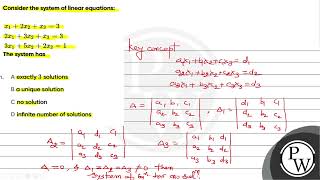 Consider the system of linear equations:
x₁ + 2x₂ + x₃ = 3
2x₁ + 3x₂ + x₃ = 3
3x₁ + 5x₂ + 2x₃ = 1
The system has
A exactly 3 solutions
B a unique solution
C no solution
D infinite number of solutions
Key concept
a₁x₁ + b₁x₂ + c₁x₃ = d₁
a₂x₁ + b₂x₂ + c₂x₃ = d₂
a₃x₁ + b₃x₂ + c₃x₃ = d₃
Δ = | a₁ b₁ c₁ | , Δ₁ = | d₁ b₁ c₁ |
a₂ b₂ c₂ d₂ b₂ c₂
a₃ b₃ c₃ d₃ b₃ c₃
Δ₂ = | a₁ d₁ c₁ | Δ₃ = | a₁ b₁ d₁ |
a₂ d₂ c₂ a₂ b₂ d₂
a₃ d₃ c₃ a₃ b₃ d₃
Δ = 0, & Δ₁ = Δ₂ = Δ₃ ≠ 0 then
System of has no
PW